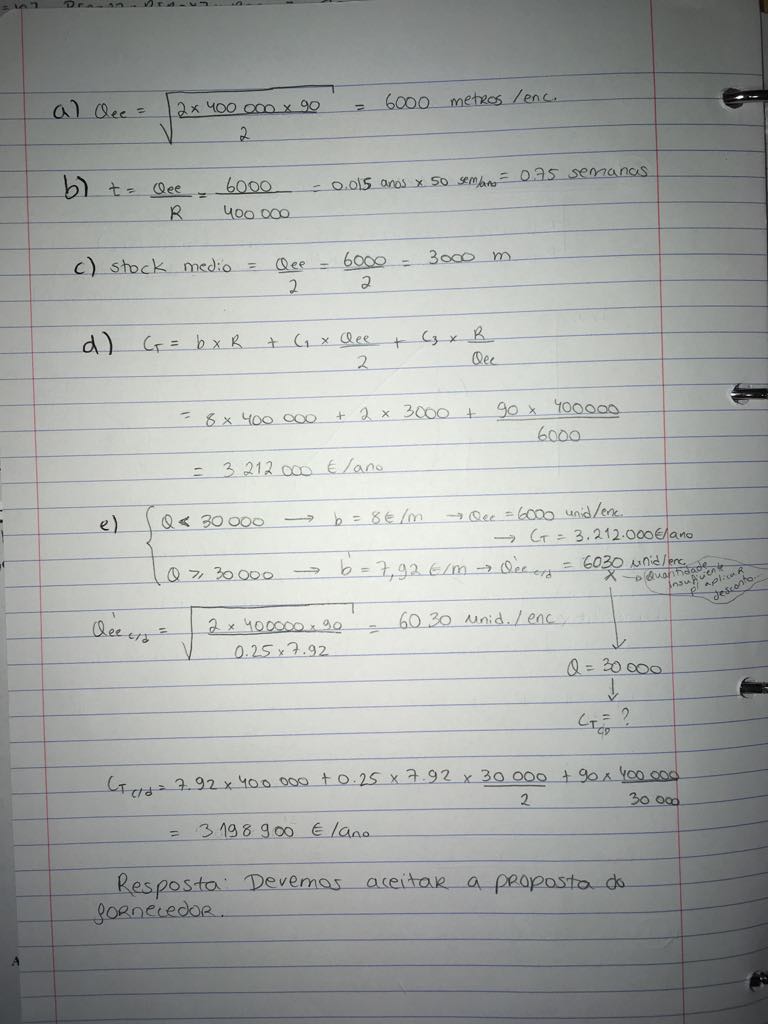 a) Qee = √(2 x 400 000 x 90 / 2) = 6000 metros/enc.
b) t = Qee/R = 6000/400 000 = 0.015 anos x 50 sem/ano = 0.75 semanas
c) stock medio = Qee/2 = 6000/2 = 3000 m
d) CT = b x R + C1 x Qee/2 + C3 x R/Qee
= 8 x 400 000 + 2 x 3000 + 90 x 400000/6000
= 3.212 000 €/ano
e) { Q < 30 000 → b = 8€/m → Qee = 6000 unid/enc.
→ CT = 3.212.000€/ano
Q ⩾ 30 000 → b' = 7,92 €/m → Q'ee c/d = 6030 unid/enc
X → Quantidade insuficiente p/ aplicar desconto.
Q'ee c/d = √(2 x 400000 x 90 / 0.25 x 7.92) = 6030 unid./enc
Q = 30 000
↓
CT c/D = ?
CT c/d = 7.92 x 400 000 + 0.25 x 7.92 x 30 000/2 + 90 x 400 000/30 000
= 3 198 900 €/ano
Resposta: Devemos aceitar a proposta do
fornecedor.
A